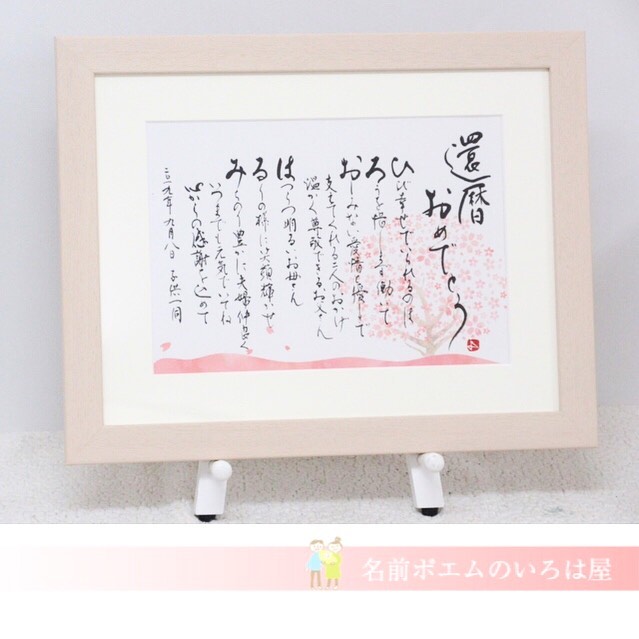 還暦
おめでとう
ひび幸せでいられるのは
ろうを惜しまず働いて
おしみない愛情を授けて
支えてくれる二人のおかげ
温かく尊敬できるお父さん
はつらつ明るいお母さん
る
みのり豊かに夫婦仲良く
いつまでも元気でいてね
心からの感謝を込めて
二〇一九年九月八日 子供一同
名前ポエムのいろは屋